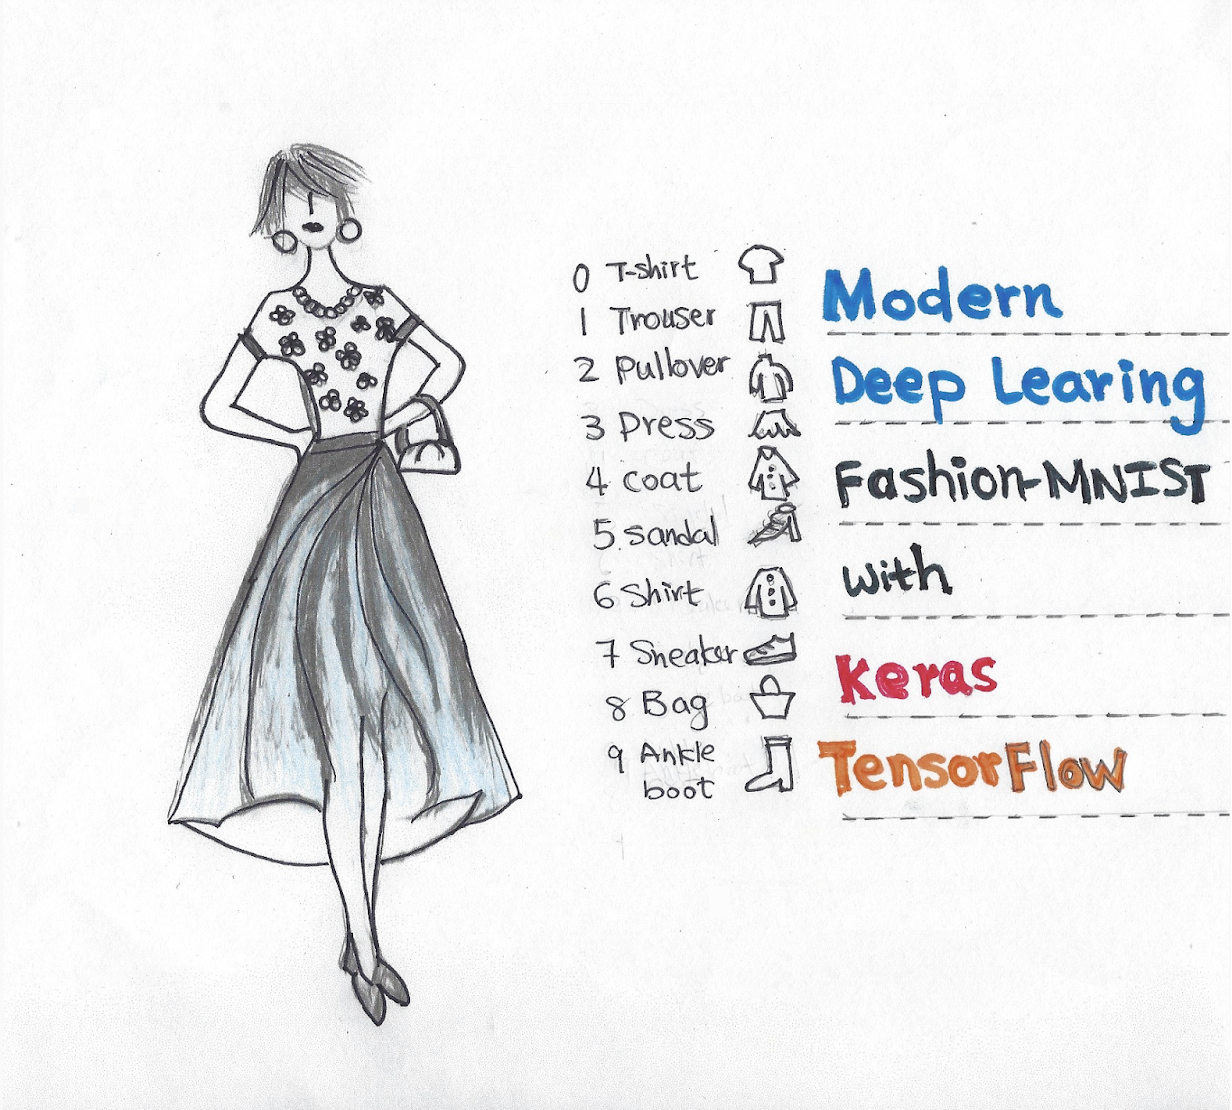 0 T-shirt
1 Trouser
2 Pullover
3 Dress
4 coat
5 sandal
6 Shirt
7 Sneaker
8 Bag
9 Ankle
boot
Modern
Deep Learing
Fashion-MNIST
with
Keras
TensorFlow